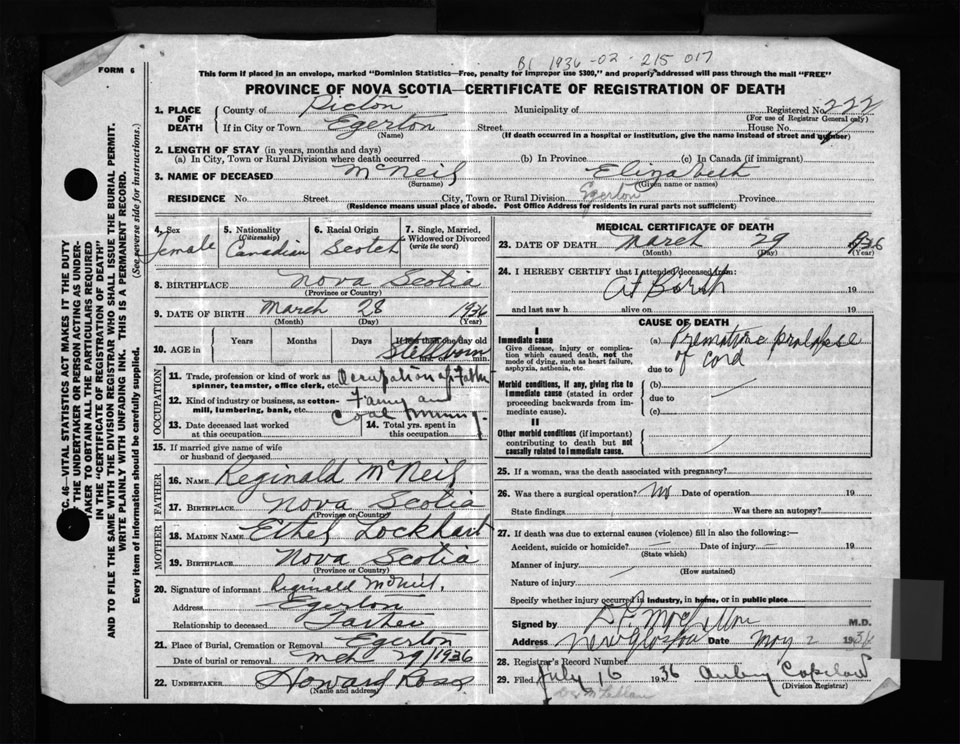 B1 1936-02-215 017
FORM 6
This form if placed in an envelope, marked "Dominion Statistics—Free, penalty for improper use $300," and properly addressed will pass through the mail "FREE"
PROVINCE OF NOVA SCOTIA—CERTIFICATE OF REGISTRATION OF DEATH
1. PLACE OF DEATH
County of Pictou Municipality of Registered No. 222
(For use of Registrar General only)
If in City or Town Egerton Street House No.
(Name) (If death occurred in a hospital or institution, give the name instead of street and number)
2. LENGTH OF STAY (in years, months and days)
(a) In City, Town or Rural Division where death occurred (b) In Province (c) In Canada (if immigrant)
3. NAME OF DECEASED McNeil Elizabeth
(Surname) (Given name or names)
RESIDENCE No. Street City, Town or Rural Division Egerton Province
(Residence means usual place of abode. Post Office Address for residents in rural parts not sufficient)
4. Sex Female
5. Nationality (Citizenship) Canadian
6. Racial Origin Scotch
7. Single, Married, Widowed or Divorced (write the word)
8. BIRTHPLACE Nova Scotia
(Province or Country)
9. DATE OF BIRTH March 28 1936
(Month) (Day) (Year)
10. AGE in Years Months Days If less than one day old
Stillborn
OCCUPATION
11. Trade, profession or kind of work as spinner, teamster, office clerk, etc. Occupation of Father
12. Kind of industry or business, as cotton-mill, lumbering, bank, etc.
Coal Mining
13. Date deceased last worked at this occupation
14. Total yrs. spent in this occupation
15. If married give name of wife or husband of deceased
FATHER
16. NAME Reginald McNeil
17. BIRTHPLACE Nova Scotia
(Province or Country)
MOTHER
18. MAIDEN NAME Ethel Lockhart
19. BIRTHPLACE Nova Scotia
(Province or Country)
20. Signature of informant Reginald McNeil,
Address Egerton
Relationship to deceased Father
21. Place of Burial, Cremation or Removal Egerton
Date of burial or removal Mch 29/1936
22. UNDERTAKER Howard Ross
(Name and address)
MEDICAL CERTIFICATE OF DEATH
23. DATE OF DEATH March 29 1936
(Month) (Day) (Year)
24. I HEREBY CERTIFY that I attended deceased from:
At Birth 19
and last saw h alive on 19
CAUSE OF DEATH
I
Immediate cause (a) Premature prolapse of cord
Give disease, injury or complication which caused death, not the mode of dying, such as heart failure, asphyxia, asthenia, etc.
due to
Morbid conditions, if any, giving rise to immediate cause (stated in order proceeding backwards from immediate cause).
(b)
due to
(c)
II
Other morbid conditions (if important) contributing to death but not causally related to immediate cause.
25. If a woman, was the death associated with pregnancy?
26. Was there a surgical operation? No Date of operation 19
State findings Was there an autopsy?
27. If death was due to external causes (violence) fill in also the following:—
Accident, suicide or homicide? Date of injury 19
(State which)
Manner of injury
(How sustained)
Nature of injury
Specify whether injury occurred in industry, in home, or in public place
Signed by M.D.
Address New Glasgow Date May 2 1936
28. Registrar's Record Number
29. Filed July 16 1936
(Division Registrar)
SEC. 46—VITAL STATISTICS ACT MAKES IT THE DUTY OF THE UNDERTAKER OR PERSON ACTING AS UNDERTAKER TO OBTAIN ALL THE PARTICULARS REQUIRED IN THE "CERTIFICATE OF REGISTRATION OF DEATH"
AND TO FILE THE SAME WITH THE DIVISION REGISTRAR WHO SHALL ISSUE THE BURIAL PERMIT.
WRITE PLAINLY WITH UNFADING INK. THIS IS A PERMANENT RECORD.
Every item of information should be carefully supplied. (See reverse side for instructions.)